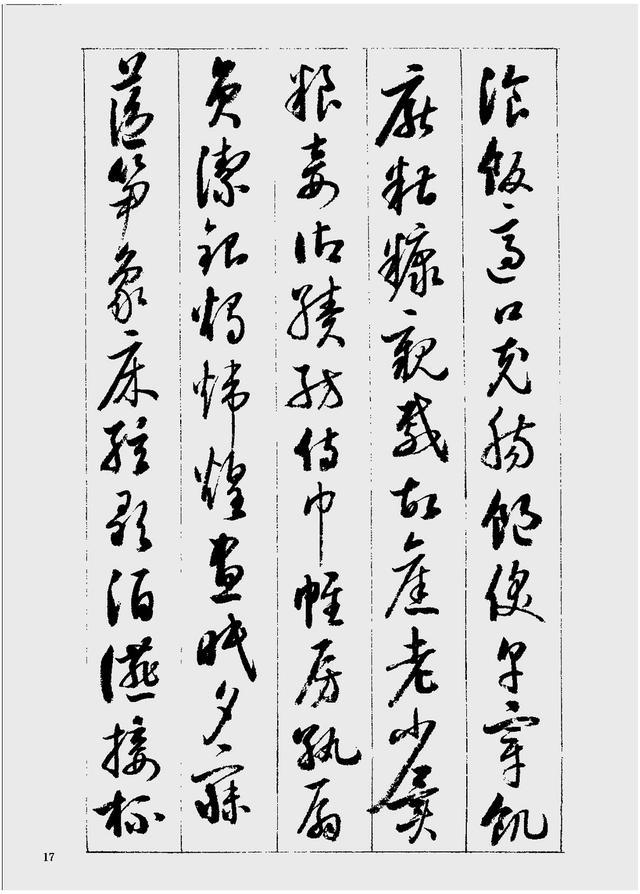 湌飯適口充腸飽飫烹宰飢
厭糟糠親戚故舊老少異
粮妾御績紡侍巾帷房紈扇
員潔銀燭煒煌晝眠夕寐
藍笋象床絃歌酒讌接杯
17